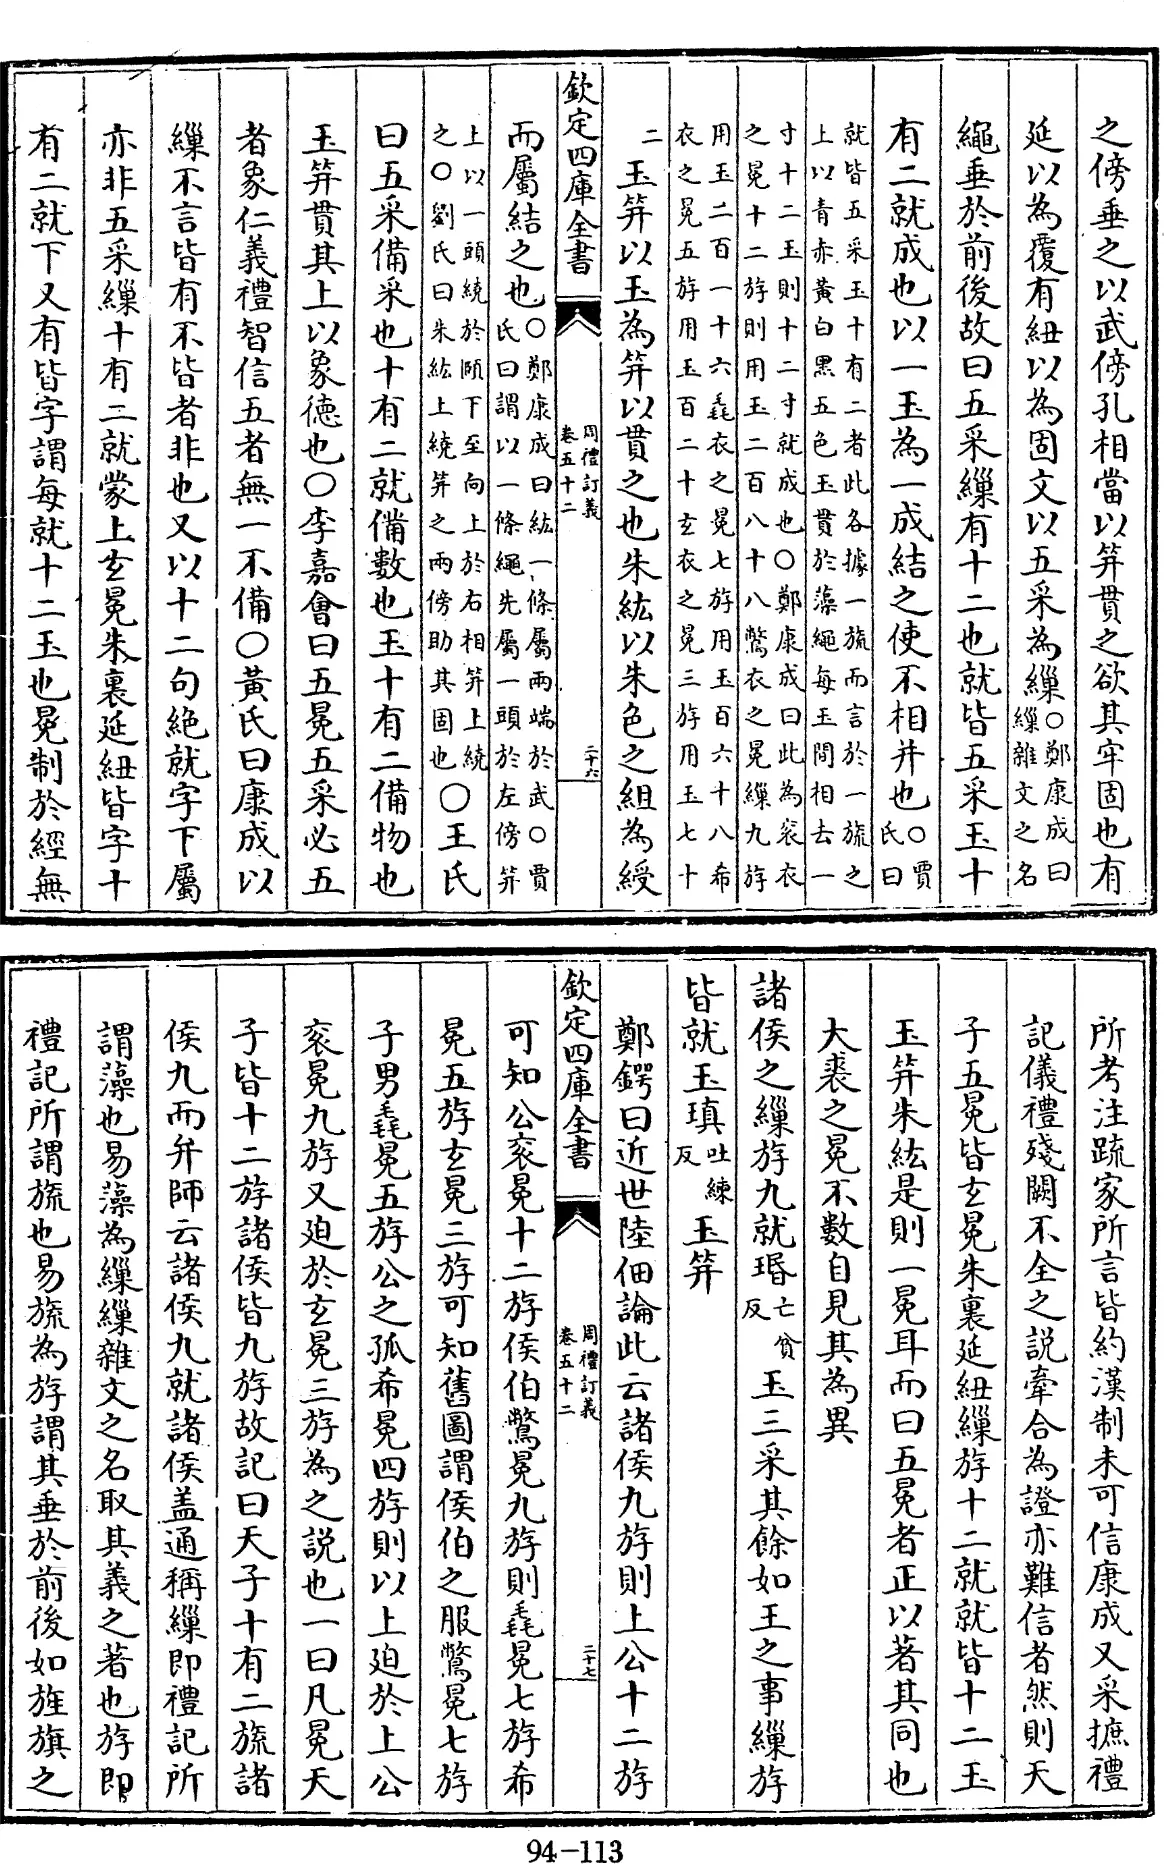 之傍垂之以武傍孔相當以笄貫之欲其牢固也有
延以為覆有紐以為固文以五采為繅○鄭康成曰繅雜文之名
繩垂於前後故曰五采繅有十二也就皆五采玉十
有二就成也以一玉為一成結之使不相并也○賈氏曰
就皆五采玉十有二者此各據一旒而言於一旒之
上以青赤黃白黑五色玉貫於藻繩每玉間相去一
寸十二玉則十二寸就成也○鄭康成曰此為衮衣
之冕十二斿則用玉二百八十八鷩衣之冕繅九斿
用玉二百一十六毳衣之冕七斿用玉百六十八希
衣之冕五斿用玉百二十玄衣之冕三斿用玉七十
二玉笄以玉為笄以貫之也朱紘以朱色之組為綬
欽定四庫全書
周禮訂義
卷五十二
二十六
而屬結之也○鄭康成曰紘一條屬兩端於武○賈氏曰謂以一條繩先屬一頭於左傍笄
上以一頭繞於頤下至向上於右相笄上繞
之○劉氏曰朱紘上繞笄之兩傍助其固也○王氏
曰五采備采也十有二就備數也玉十有二備物也
玉笄貫其上以象德也○李嘉會曰五冕五采必五
者象仁義禮智信五者無一不備○黃氏曰康成以
繅不言皆有不皆者非也又以十二句絶就字下屬
亦非五采繅十有二就蒙上玄冕朱裏延紐皆字十
有二就下又有皆字謂每就十二玉也冕制於經無
所考注疏家所言皆約漢制未可信康成又采摭禮
記儀禮殘闕不全之説牽合為證亦難信者然則天
子五冕皆玄冕朱裏延紐繅斿十二就就皆十二玉
玉笄朱紘是則一冕耳而曰五冕者正以著其同也
大裘之冕不數自見其為異
諸侯之繅斿九就瑉亡貧反玉三采其餘如王之事繅斿
皆就玉瑱吐練反玉笄
鄭鍔曰近世陸佃論此云諸侯九斿則上公十二斿
欽定四庫全書
周禮訂義
卷五十二
二十七
可知公衮冕十二斿侯伯鷩冕九斿則毳冕七斿希
冕五斿玄冕三斿可知舊圖謂侯伯之服鷩冕七斿
子男毳冕五斿公之孤希冕四斿則以上廹於上公
衮冕九斿又廹於玄冕三斿為之説也一曰凡冕天
子皆十二斿諸侯皆九斿故記曰天子十有二旒諸
侯九而弁師云諸侯九就諸侯盖通稱繅即禮記所
謂藻也易藻為繅繅雜文之名取其義之著也斿即
禮記所謂旒也易旒為斿謂其垂於前後如旌旗之